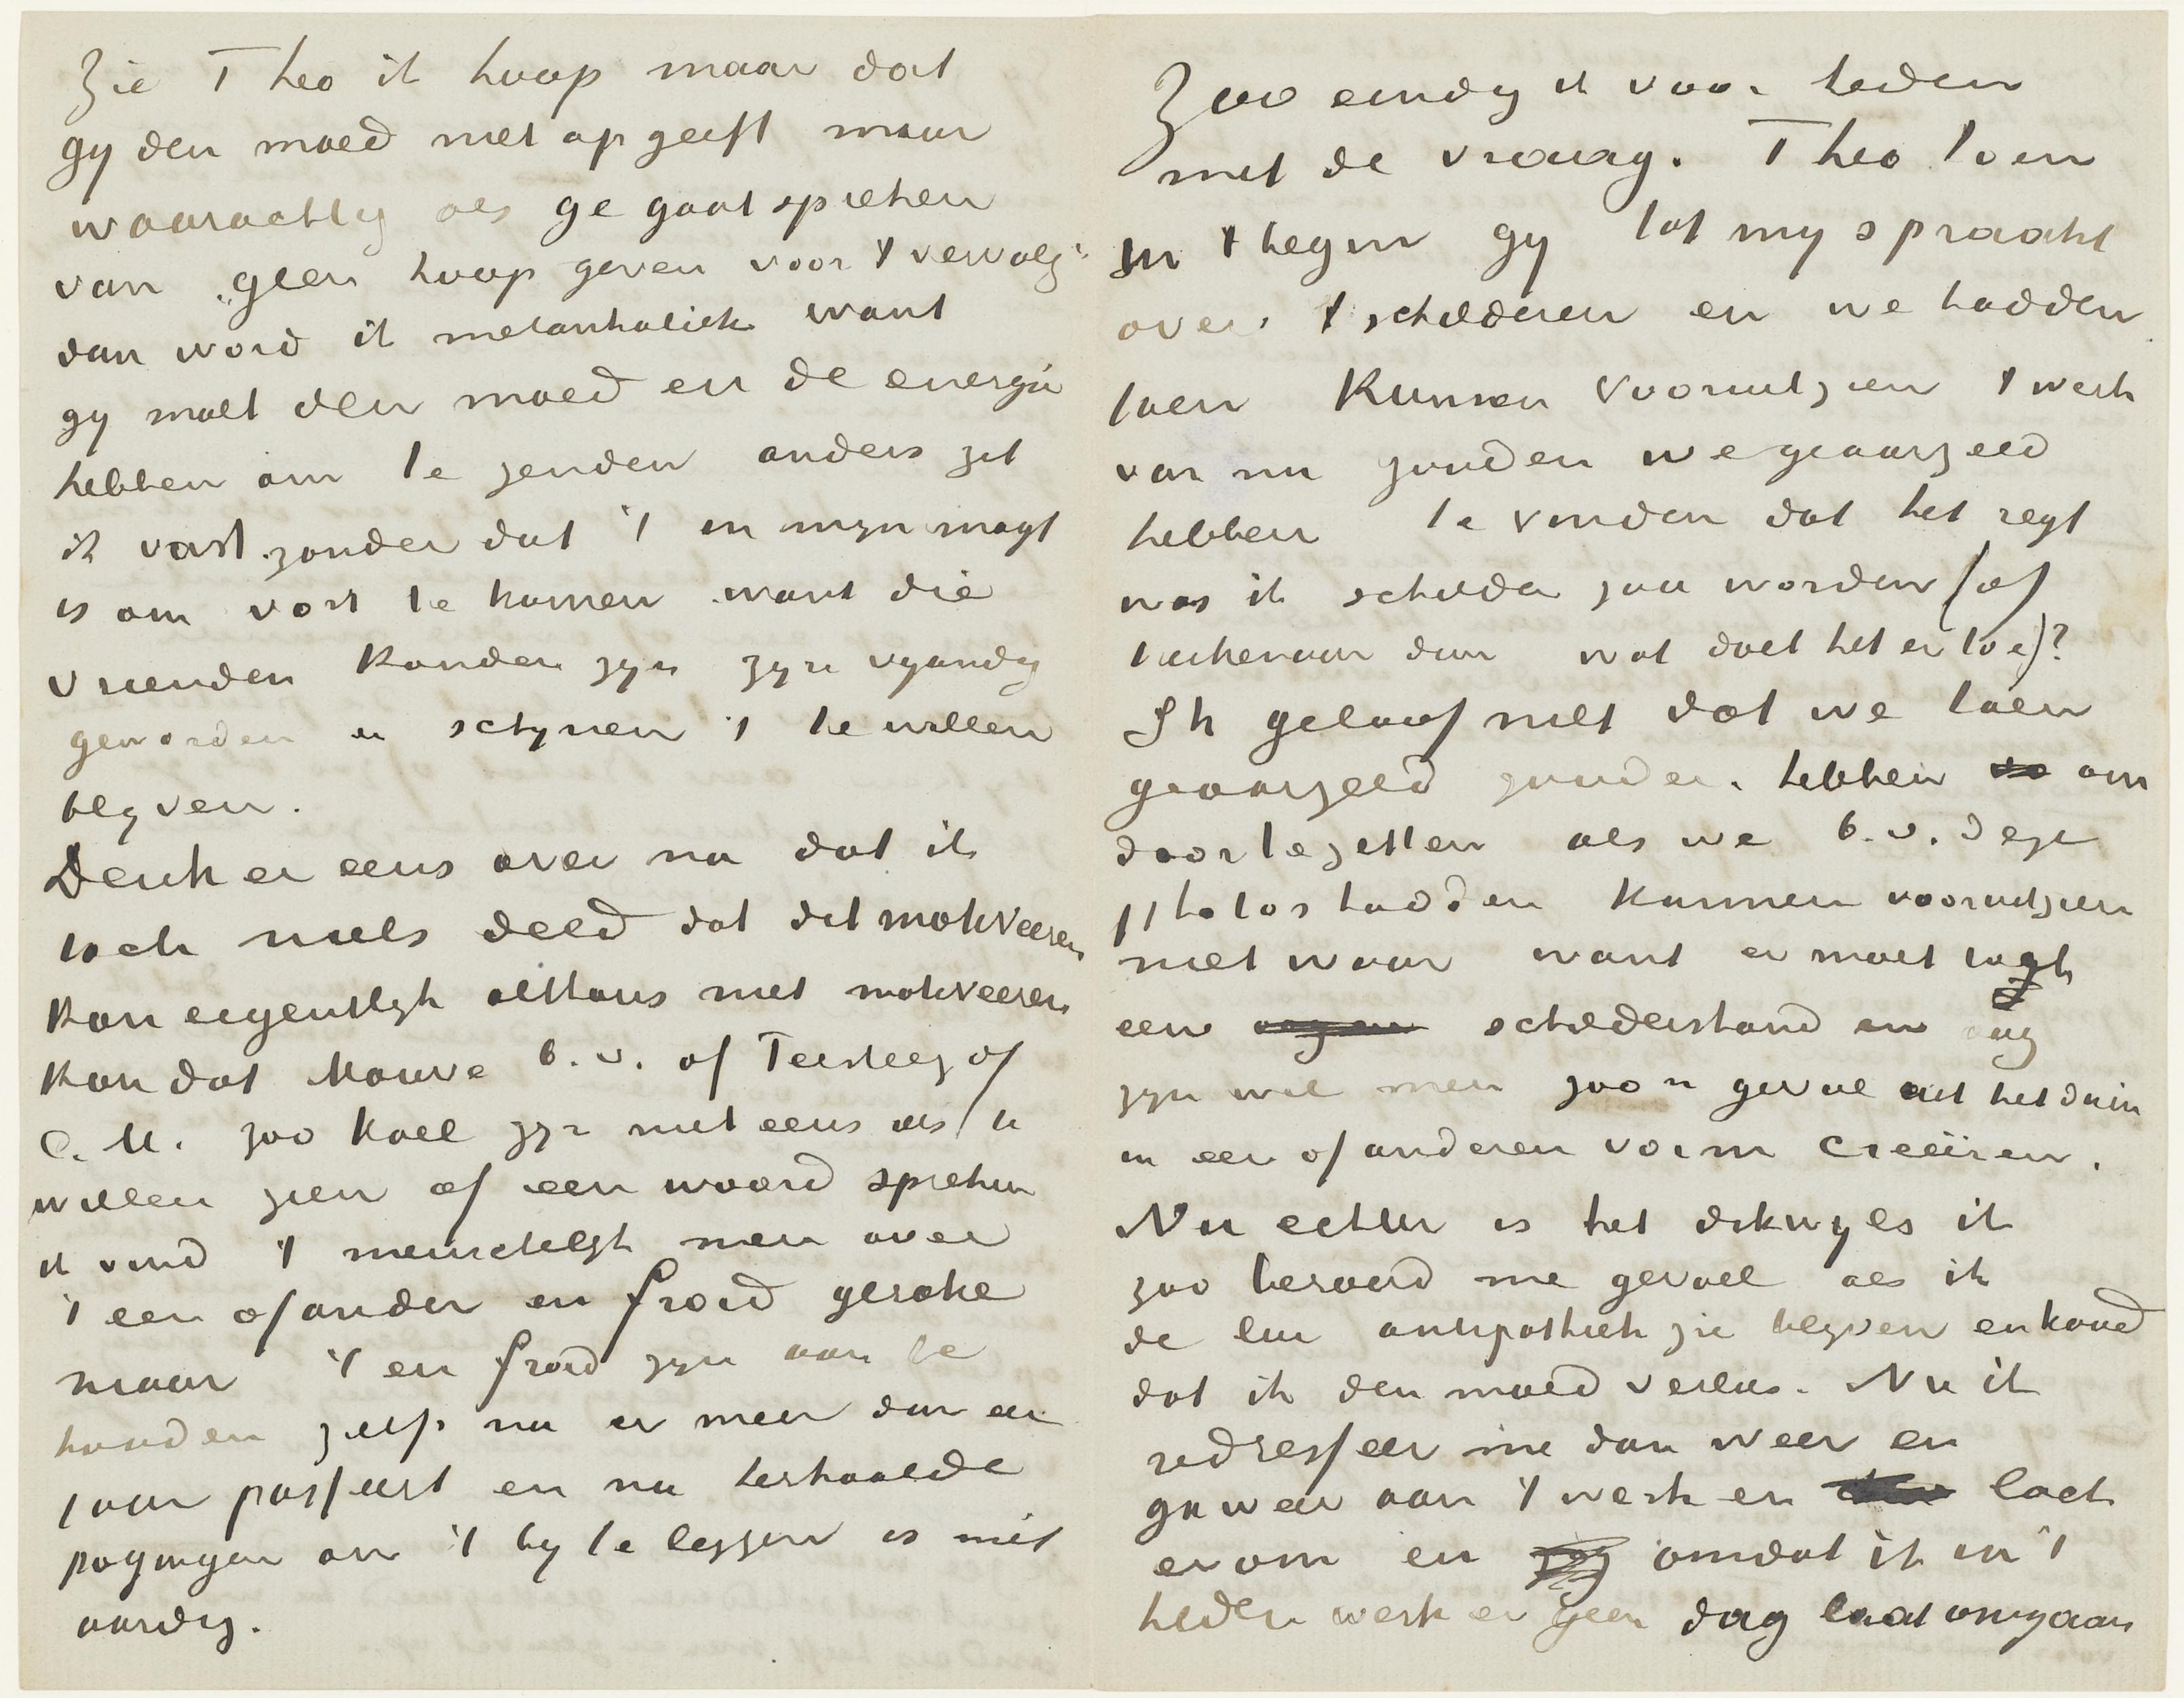 Zie Theo ik hoop maar dat
gy den moed niet op geeft maar
waarachtig als ge gaat spreken
van „geen hoop geven voor 't vervolg"
dan word ik melankoliek want
gy moet den moed en de energie
hebben om te zenden anders zit
ik vast zonder dat 't in myn magt
is om vort te komen want die
vrienden konden zyn zyn vyandig
geworden en schynen 't te willen
blyven.
Denk er eens over na dat ik
toch niets deed dat dit motiveeren
kon eigentlyk althans niet motiveeren
kon dat Mauve b.v. of Tersteeg of
C.M. zoo koel zyn niet eens iets te
willen zien of een woord spreken
ik vind 't menschelyk men over
't een of ander en froid gerake
maar 't en froid zyn aan te
houden zelfs na er meer dan een
jaar passeert en na herhaalde
pogingen om 't by te leggen is niet
aardig.
Zoo eindig ik voor heden
met de vraag. Theo toen
in 't begin gy tot my spraakt
over 't schilderen en we hadden
toen kunnen vooruitzien 't werk
van nu zouden we geaarzeld
hebben te vinden dat het regt
was ik schilder zou worden (of
teekenaar dan wat doet het er toe)?
Ik geloof niet dat we toen
geaarzeld zouden hebben om
doortezetten als we b.v. deze
photos hadden kunnen vooruitzien
niet waar want er moet togh
een schildershand en oog
zyn wil men zoo'n geval uit het duin
in een of anderen vorm creëeren.
Nu echter is het dikwyls ik
zoo beroerd me gevoel als ik
de lui antipathiek zie blyven en koud
dat ik den moed verlies. Nu ik
redresseer me dan weer en
ga weer aan 't werk en lach
er om en omdat ik in 't
heden werk en geen dag laat omgaan